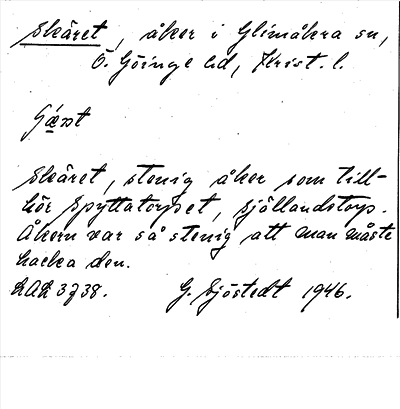 Skäret, åker i Glimåkra sn,
Ö. Göinge hd, Krist. l.
Skäret, stenig åker som till-
hör Spyttatorpet, Sjöllandstorp.
Åkern var så stenig att man måste
hacka den.
LAL 3738. G. Sjöstedt 1946.